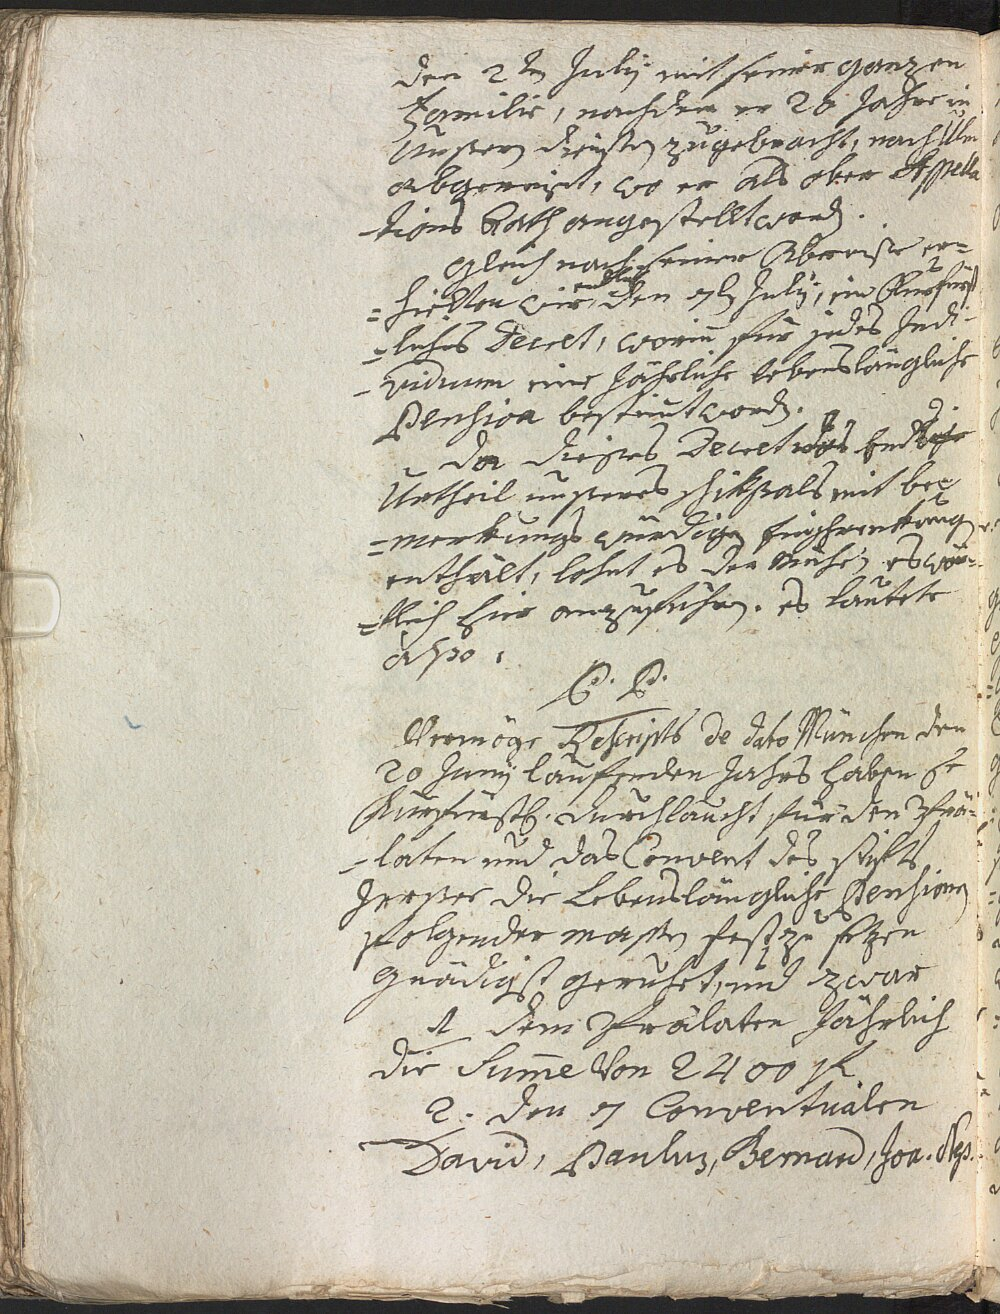 den 2tn July mit seiner ganzen
Familie, nachdem er 28 Jahre in
Unsern diensten zugebracht, nach Ulm
abgereist, wo er als ober Appella
tions Rath angestellt word.
Gleich nach seiner Abreise er=
=hielten wir endlich den 7tn July, ein Churfürst
=liches Decret, worin für jedes Indi-
-viduum eine Jährliche lebenslängliche
Pension bestimt word.
Da dieses Decret das End
Urtheil unseres schiksals mit be
=merkungs würdigen
enthält, lohnt es der Mühe, es wör=
=tlich hier anzuführen. es lautete
also:
P. P.
Vermöge Rescripts de dato München den
20 Juny laufenden Jahrs haben Se
Kurfürstl. durchlaucht für den Prä=
-laten und das Convent des stifts
Irrsee die Lebenslängliche Pensionen
folgender massen festzu setzen
gnädigst geruhet, und zwar
1 dem Prälaten Jährlich
die Summe Von 2400 fl
2. den 7 Conventualen
David, Paulus, Bernard, Joa. Nep.